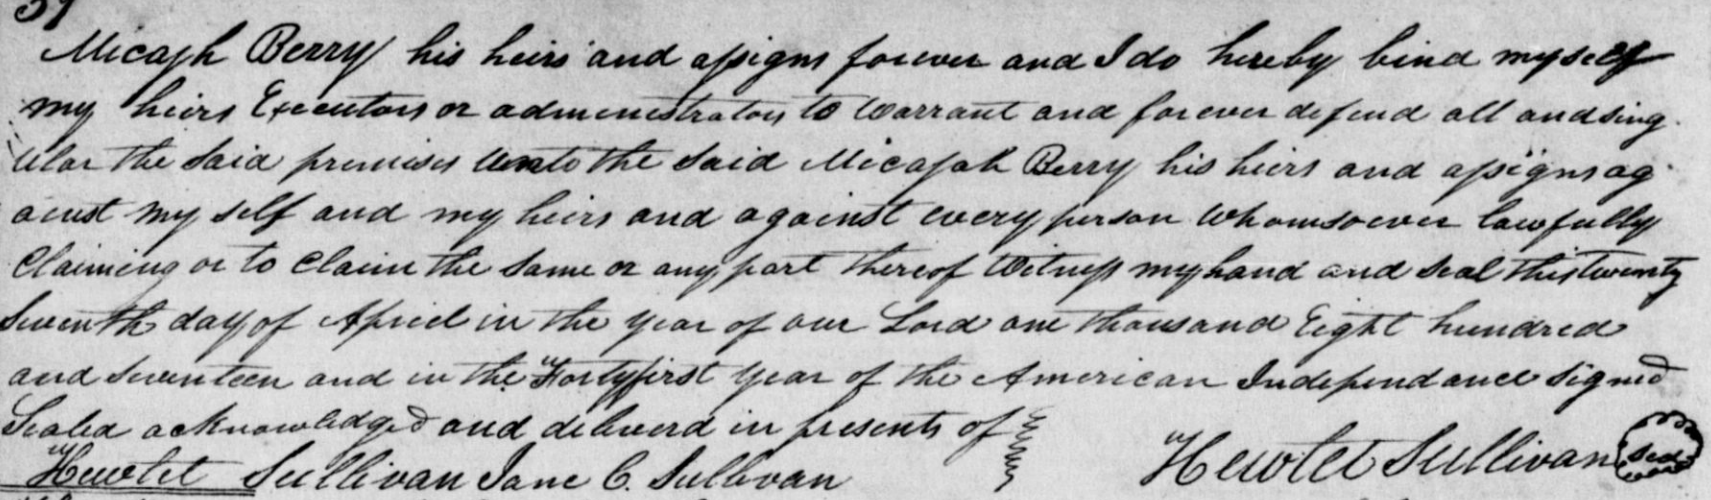 Micajh Berry his heirs and assigns forever and I do hereby bind myself
my heirs Executors or administrators to warrant and forever defend all and sing
ular the said premises unto the said Micajah Berry his heirs and assigns ag
ainst my self and my heirs and against every person whomsoever lawfully
claiming or to claim the same or any part thereof Witness my hand and seal this twenty
seventh day of April in the year of our Lord one thousand Eight hundred
and seventeen and in the Forty first year of the American Independance signed
Sealed acknowledged and deliverd in presents of
Hewlet Sullivan Jane C. Sullivan Hewlet Sullivan seal